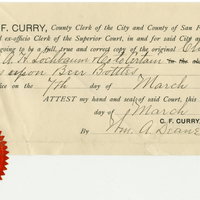 F. CURRY, County Clerk of the City and County of San F
d ex-officio Clerk of the Superior Court, in and for said City a
going to be a full, true and correct copy of the original
A. H. Lochbaum to certain
upon Beer Bottles
ce on the 7th day of March
ATTEST my hand and seal of said Court, this
day of March
C. F. CURRY
By Wm. A. Deane